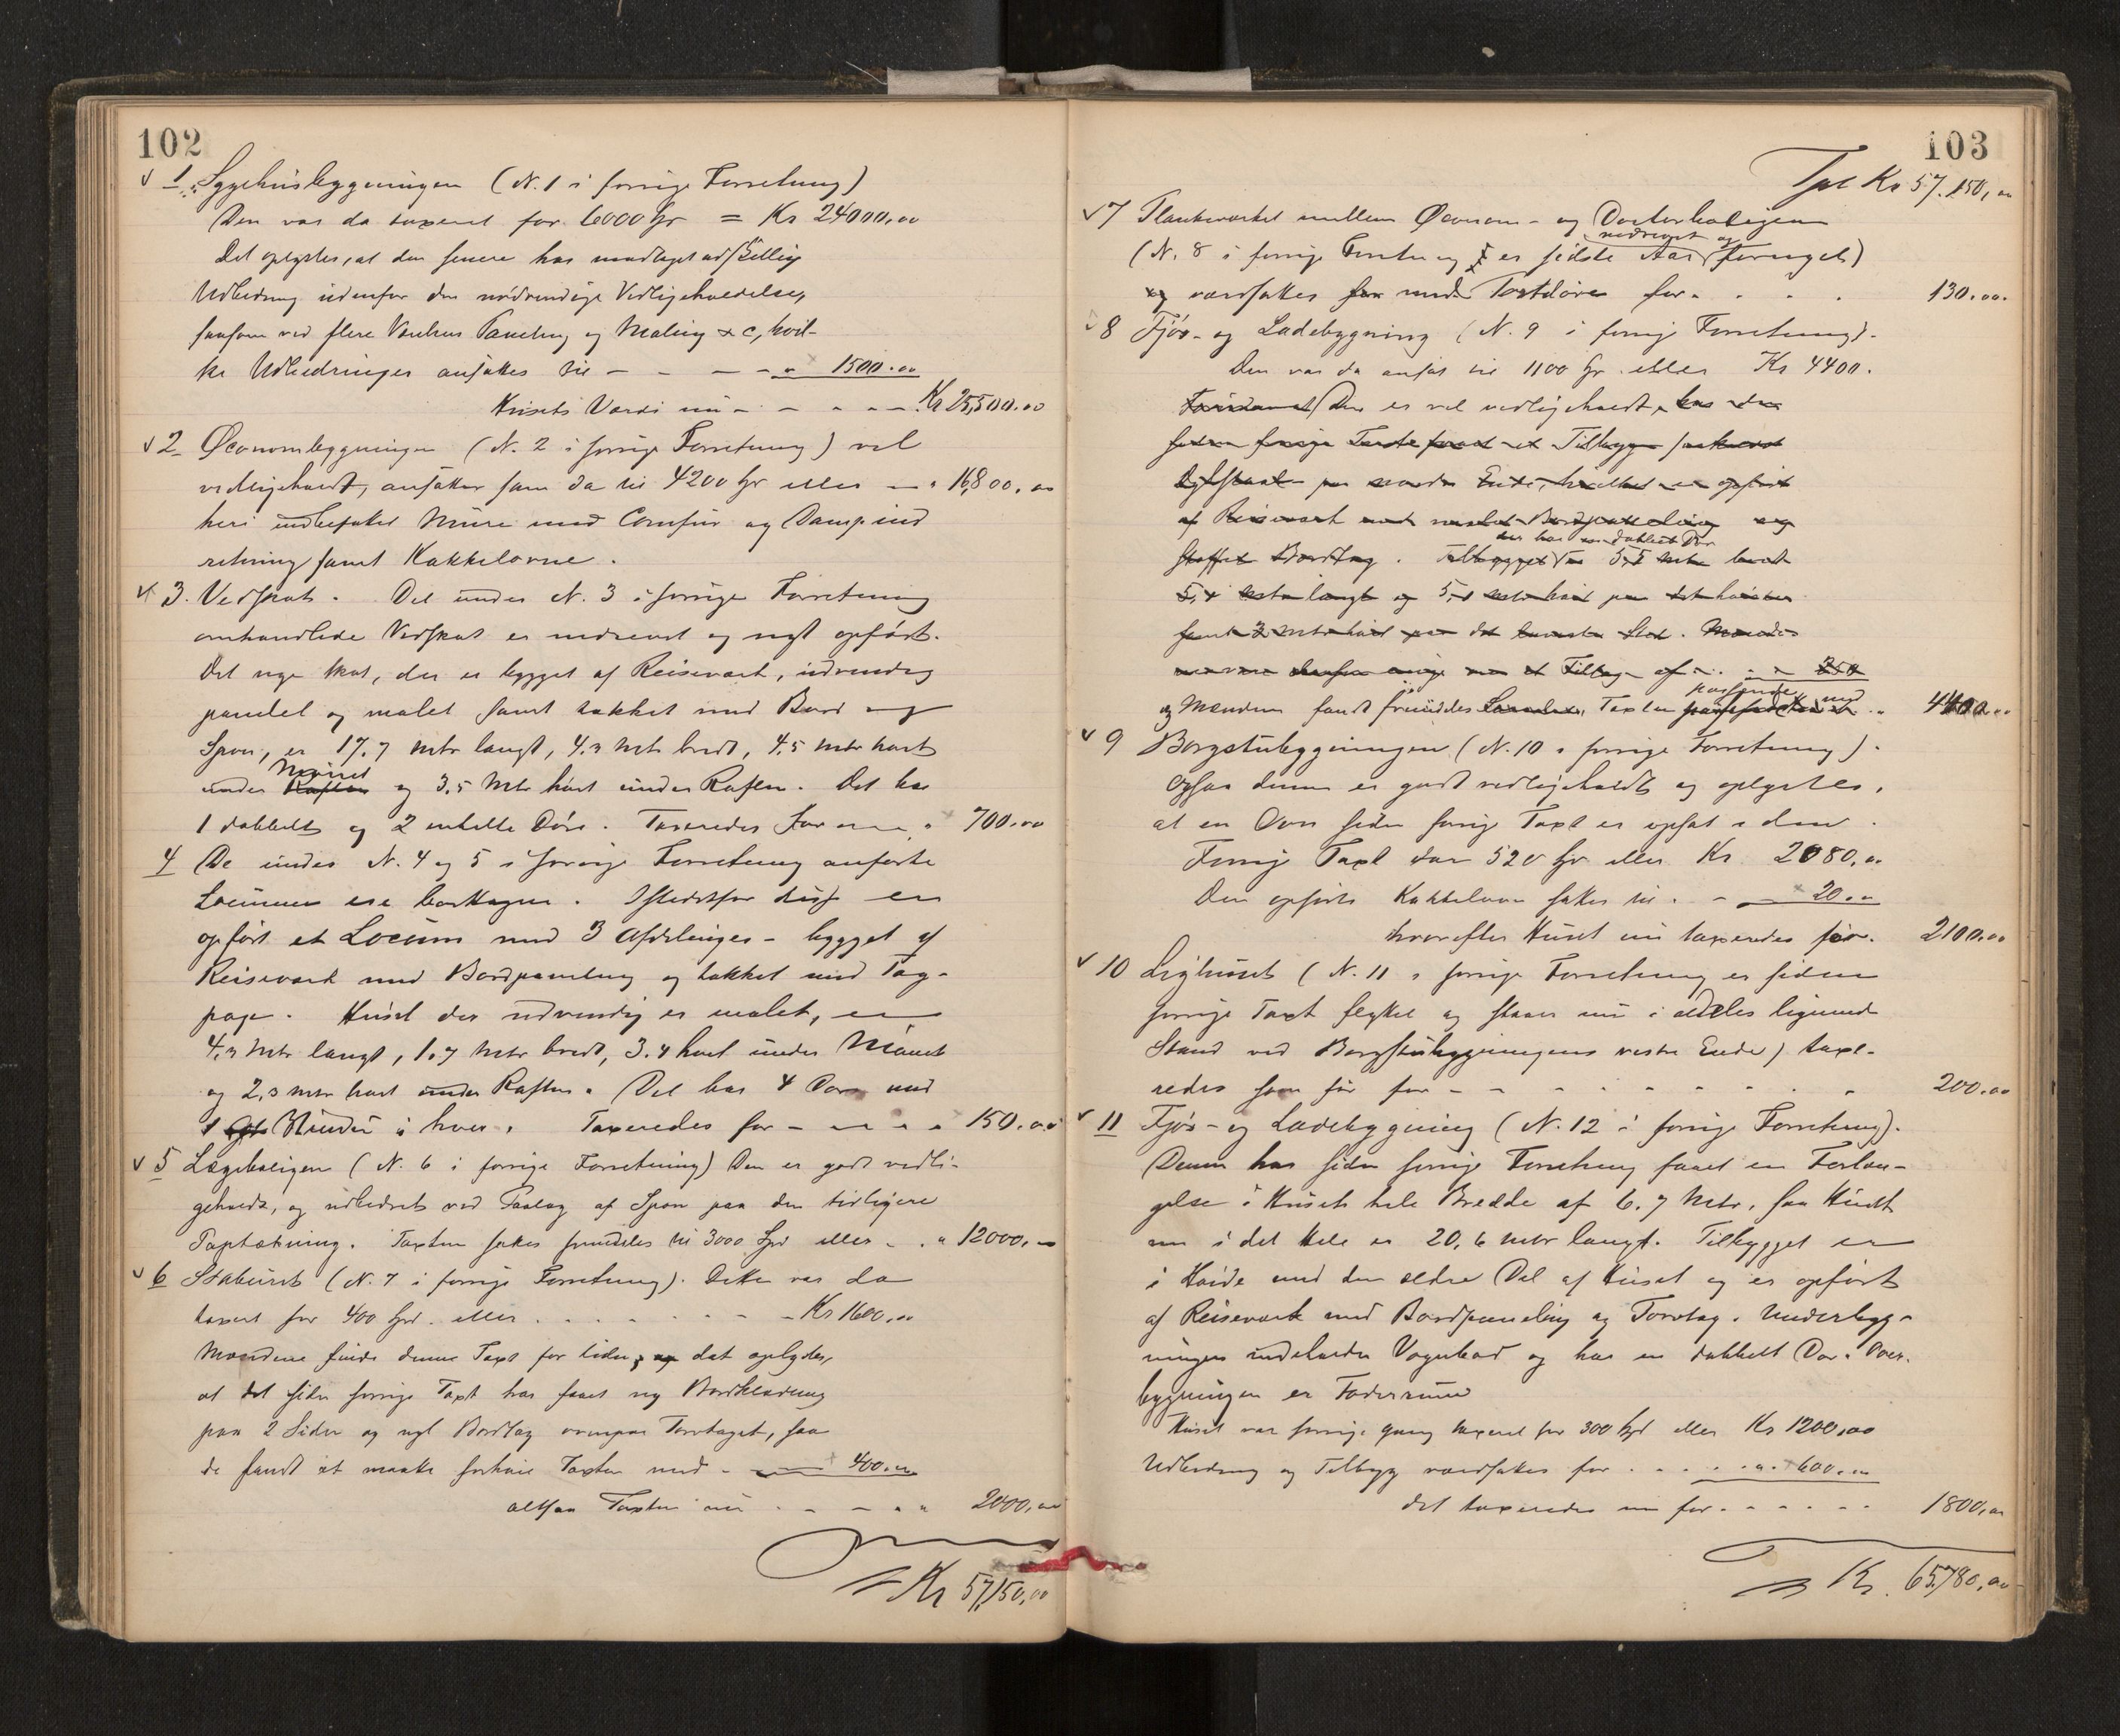 102
1. Sygehusbygningen (N. 1 i forrige Forretning)
Den var da taxeret for 6000 Spr = Kr 24000,00
Det oplystes, at den senere har modtaget adskillig
Udbedring udenfor den nødvendige Vedligeholdelse,
saasom ved flere Værelsers Paneling og Maling &c, hvil-
ke Udbedringer ansættes til - - - - " 1500.00
Husets Værdi nu - - - - - Kr 25,500.00
2 Øconombygningen (N. 2 i forrige Forretning) vel
vedligeholdt, ansættes som da til 4200 Spr eller - " 16,800,00
heri indbefattet Mure med Comfur og Dampind
retning samt Kakkelovne.
3. Vedskut. Det under N. 3 i forrige Forretning
omhandlede Vedskut er nedrevet og nyt opført.
Det nye Skut, der er bygget af Reisværk, udvendig
panelet og malet samt tækket med Bord og
Spon, er 17.7 mtr langt, 4.3 Mtr bredt, 4,5 mtr høit
Mønet
under Raften og 3.5 Mtr høit under Raften. Det har
1 dobbelt og 2 enkelte Døre. Taxeredes for - - " 700.00
4 De under N. 4 og 5 i forrige Forretning anførte
Locummer ere borttagne. Istedetfor disse er
opført et Locum med 3 Afdelinger - bygget af
Reisværk med Bordpaneling og tækket med Tag-
pap. Huset der udvendig er malet, er
4,3 Mtr langt, 1.7 Mtr bredt, 3.4 høit under Mønet
og 2,3 mtr høit under Raften. Det har 4 Døre med
1 Vindu i hver. Taxeredes for - - - " 150.00
5 Lægeboligen (N. 6 i forrige Forretning) Den er godt vedli-
geholdt, og udbedret ved Paalæg af Spon paa den tidligere
Taptækning. Taxten sættes fremdeles til 3000 Spd eller - . " 12000,00
6 Stabburet (N. 7 i forrige Forretning). Dette var da
taxert for 400 Spd. eller . . . . . . - - Kr 1600,00
Mændene finde denne Taxt for liden, og det oplystes,
at det siden forrige Taxt har faaet ny Bordklædning
paa 2 Sider og nyt Bordtag ovenpaa Torvtaget, saa
de fandt at maatte forhøie Taxten med - - 400.00
altsaa Taxten nu - - - " " 2000,00
Kr 57,150,00
103
Tpt Kr 57.150,00
7 Plankeværket mellem Øconom- og Doctorboligen
nedrevet og
(N. 8 i forrige Forretning er sidste Aar fornyet)
og værdsattes for med Portdøre for . . . . 130.00.
8 Fjøs- og Ladebygning (N. 9 i forrige Forretning).
Den var da ansat til 1100 Spr. eller Kr 4400.
Den er vel vedligeholdt, har den
siden forrige Taxt faaet et Tilbygg
paa nordre Ende, hvilket er opført
af Reisværk med malet Bordpaneling og
der har en dobbelt Dør
Bordtag. Tilbygget er 5,5 Mtr bredt
5,1 Mtr langt og 5,1 Mtr høit paa det høieste
samt 3 Mtr høit paa det laveste Sted. Mændene
et Tillæg af . . . .
passende
og Mændene fandt fremdeles Taxten " 4400.00
9 Borgstubygningen (N. 10 i forrige Forretning).
Ogsaa denne er godt vedligeholdt og oplystes,
at en Ovn siden forrige Taxt er opsat i den.
Forrige Taxt var 520 Spr eller Kr. 2080,00
Den opførte Kakkelovn sættes til . - 20.00
hvorefter Huset nu taxeredes for. 2100.00
10 Lighuset (N. 11 i forrige Forretning er siden
forrige Taxt flyttet og staar nu i aldeles lignende
Stand ved Borgstubygningens vestre Ende) taxe-
redes som før for - - - - - - - 200.00
11 Fjøs- og Ladebygning (N. 12 i forrige Forretning).
Denne har siden forrige Forretning faaet en Forlæn-
gelse i Husets hele Bredde af 6.7 Mtr, saa Huset
nu i det Hele er 20,6 mtr langt. Tilbygget er
i Høide med den ældre Del af Huset og er opført
af Reisværk med Bordpaneling og Torvtag. Underbyg-
ningen indeholder Vognbod og har en dobbelt Dør. Over-
bygningen er Foderrum
Huset var forrige Gang taxeret for 300 Spd eller Kr 1200,00
Udbedring og Tilbygg værdsattes for . . . . " 600.00
det taxeredes nu for . - - - - 1800,00
Kr. 65,780,00